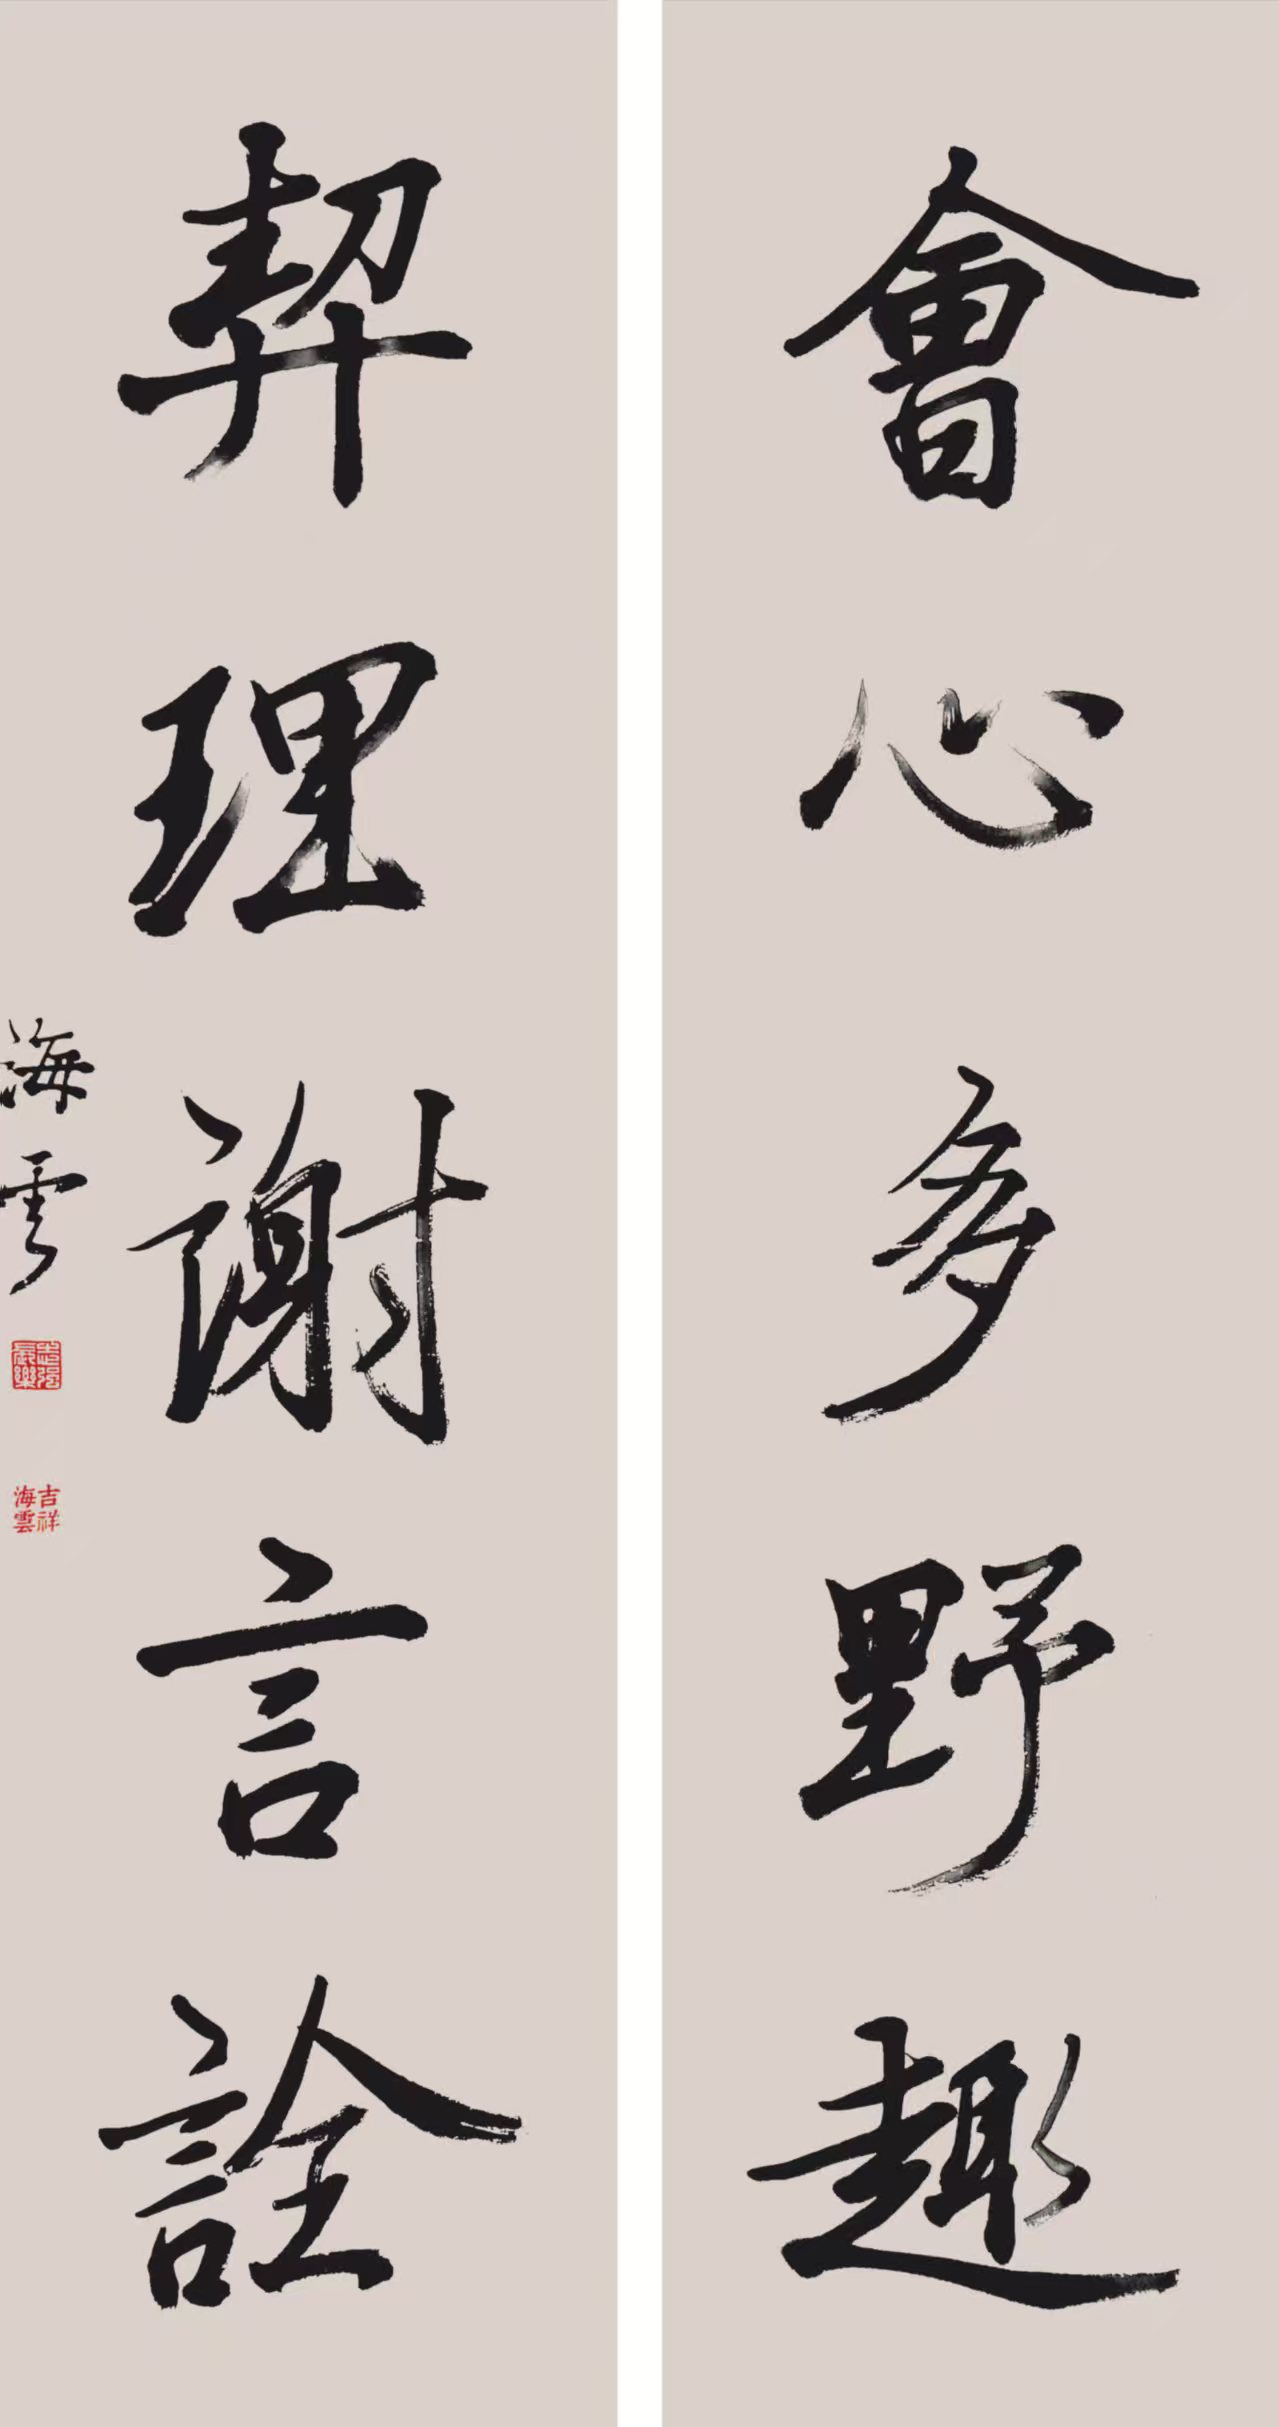 會心多野趣
契理謝言詮
海雲
吉祥海雲